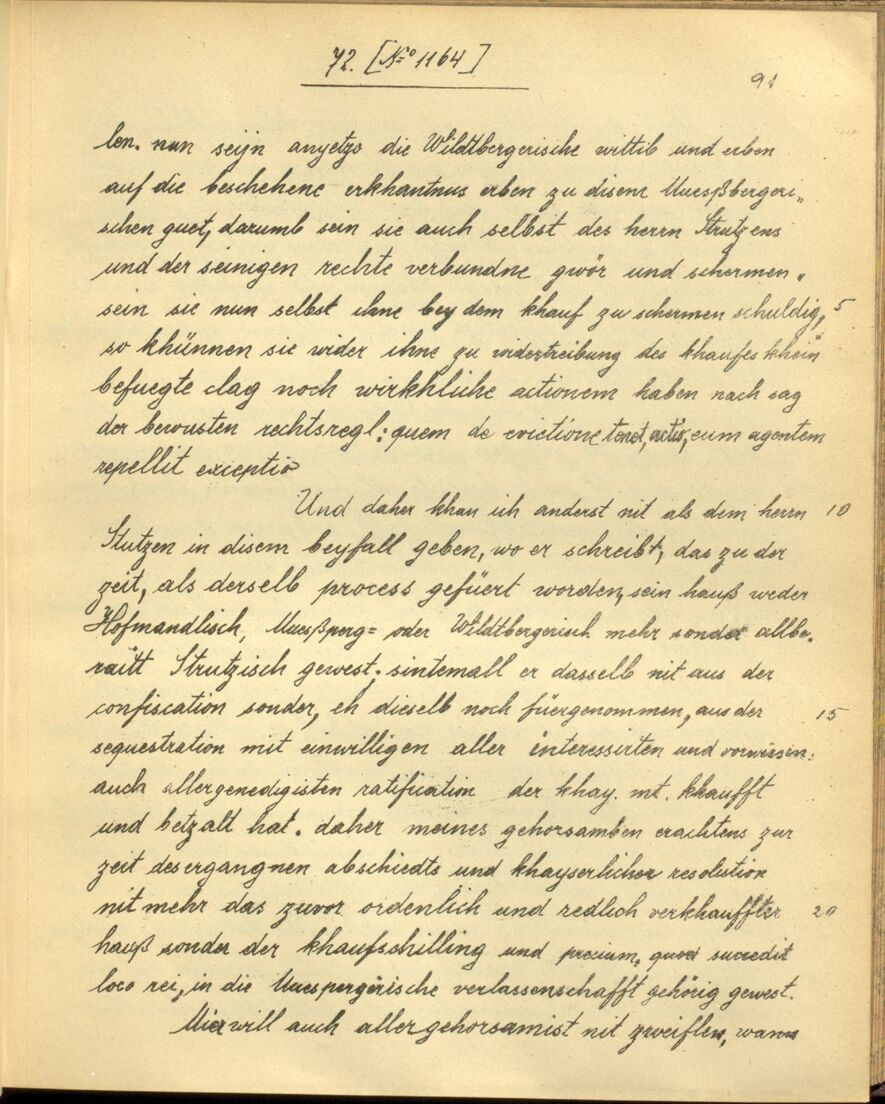 72. [No 1164]
91
len. nun seijn anyetzo die Wildtbergerische wittib und erben
auf die beschehene erkhantnus erben zu disem Muesßbergeri„
schen guet, darumb sein sie auch selbst des herrn Strutzens
und der seinigen rechte verbundne gwör und schermen.
sein sie nun selbst ihne bey dem khauf zu schermen schuldig, 5
so khünnen sie wider ihne zu widertreibung des khaufes khein
befuegte clag noch wirkhliche actionem haben nach sag
der bewusten rechtsregl: quem de evictione tenet, actio, eum agentem
repellit exceptio
Und daher khan ich anderst nit als dem herrn 10
Stutzen in disem beyfall geben, wo er schreibt, das zu der
zeit, als derselb process gefüert worden, sein hauß weder
Hofmandlisch, Muesßperg= oder Wildtbergerisch mehr sonder allbe.
raitt Strutzisch gewest; sintemall er dasselb nit aus der
confiscation sonder, eh dieselb noch füergenommen, aus der 15
sequestration mit einwilligen aller interessirten und vorwissen:
auch allergenedigisten ratification der khay. mt. khaufft
und betzalt hat. daher meines gehorsamben erachtens zur
zeit des ergangnen abschiedts und khayserlicher resolution
nit mehr das zuvor ordenlich und redlich verkhauffter 20
hauß sonder der khaufschilling und precium, quod succedit
loco rei, in die Muespergerische verlassenschafft gehörig gewest.
Mier will auch allergehorsamist nit zweiflen, wann